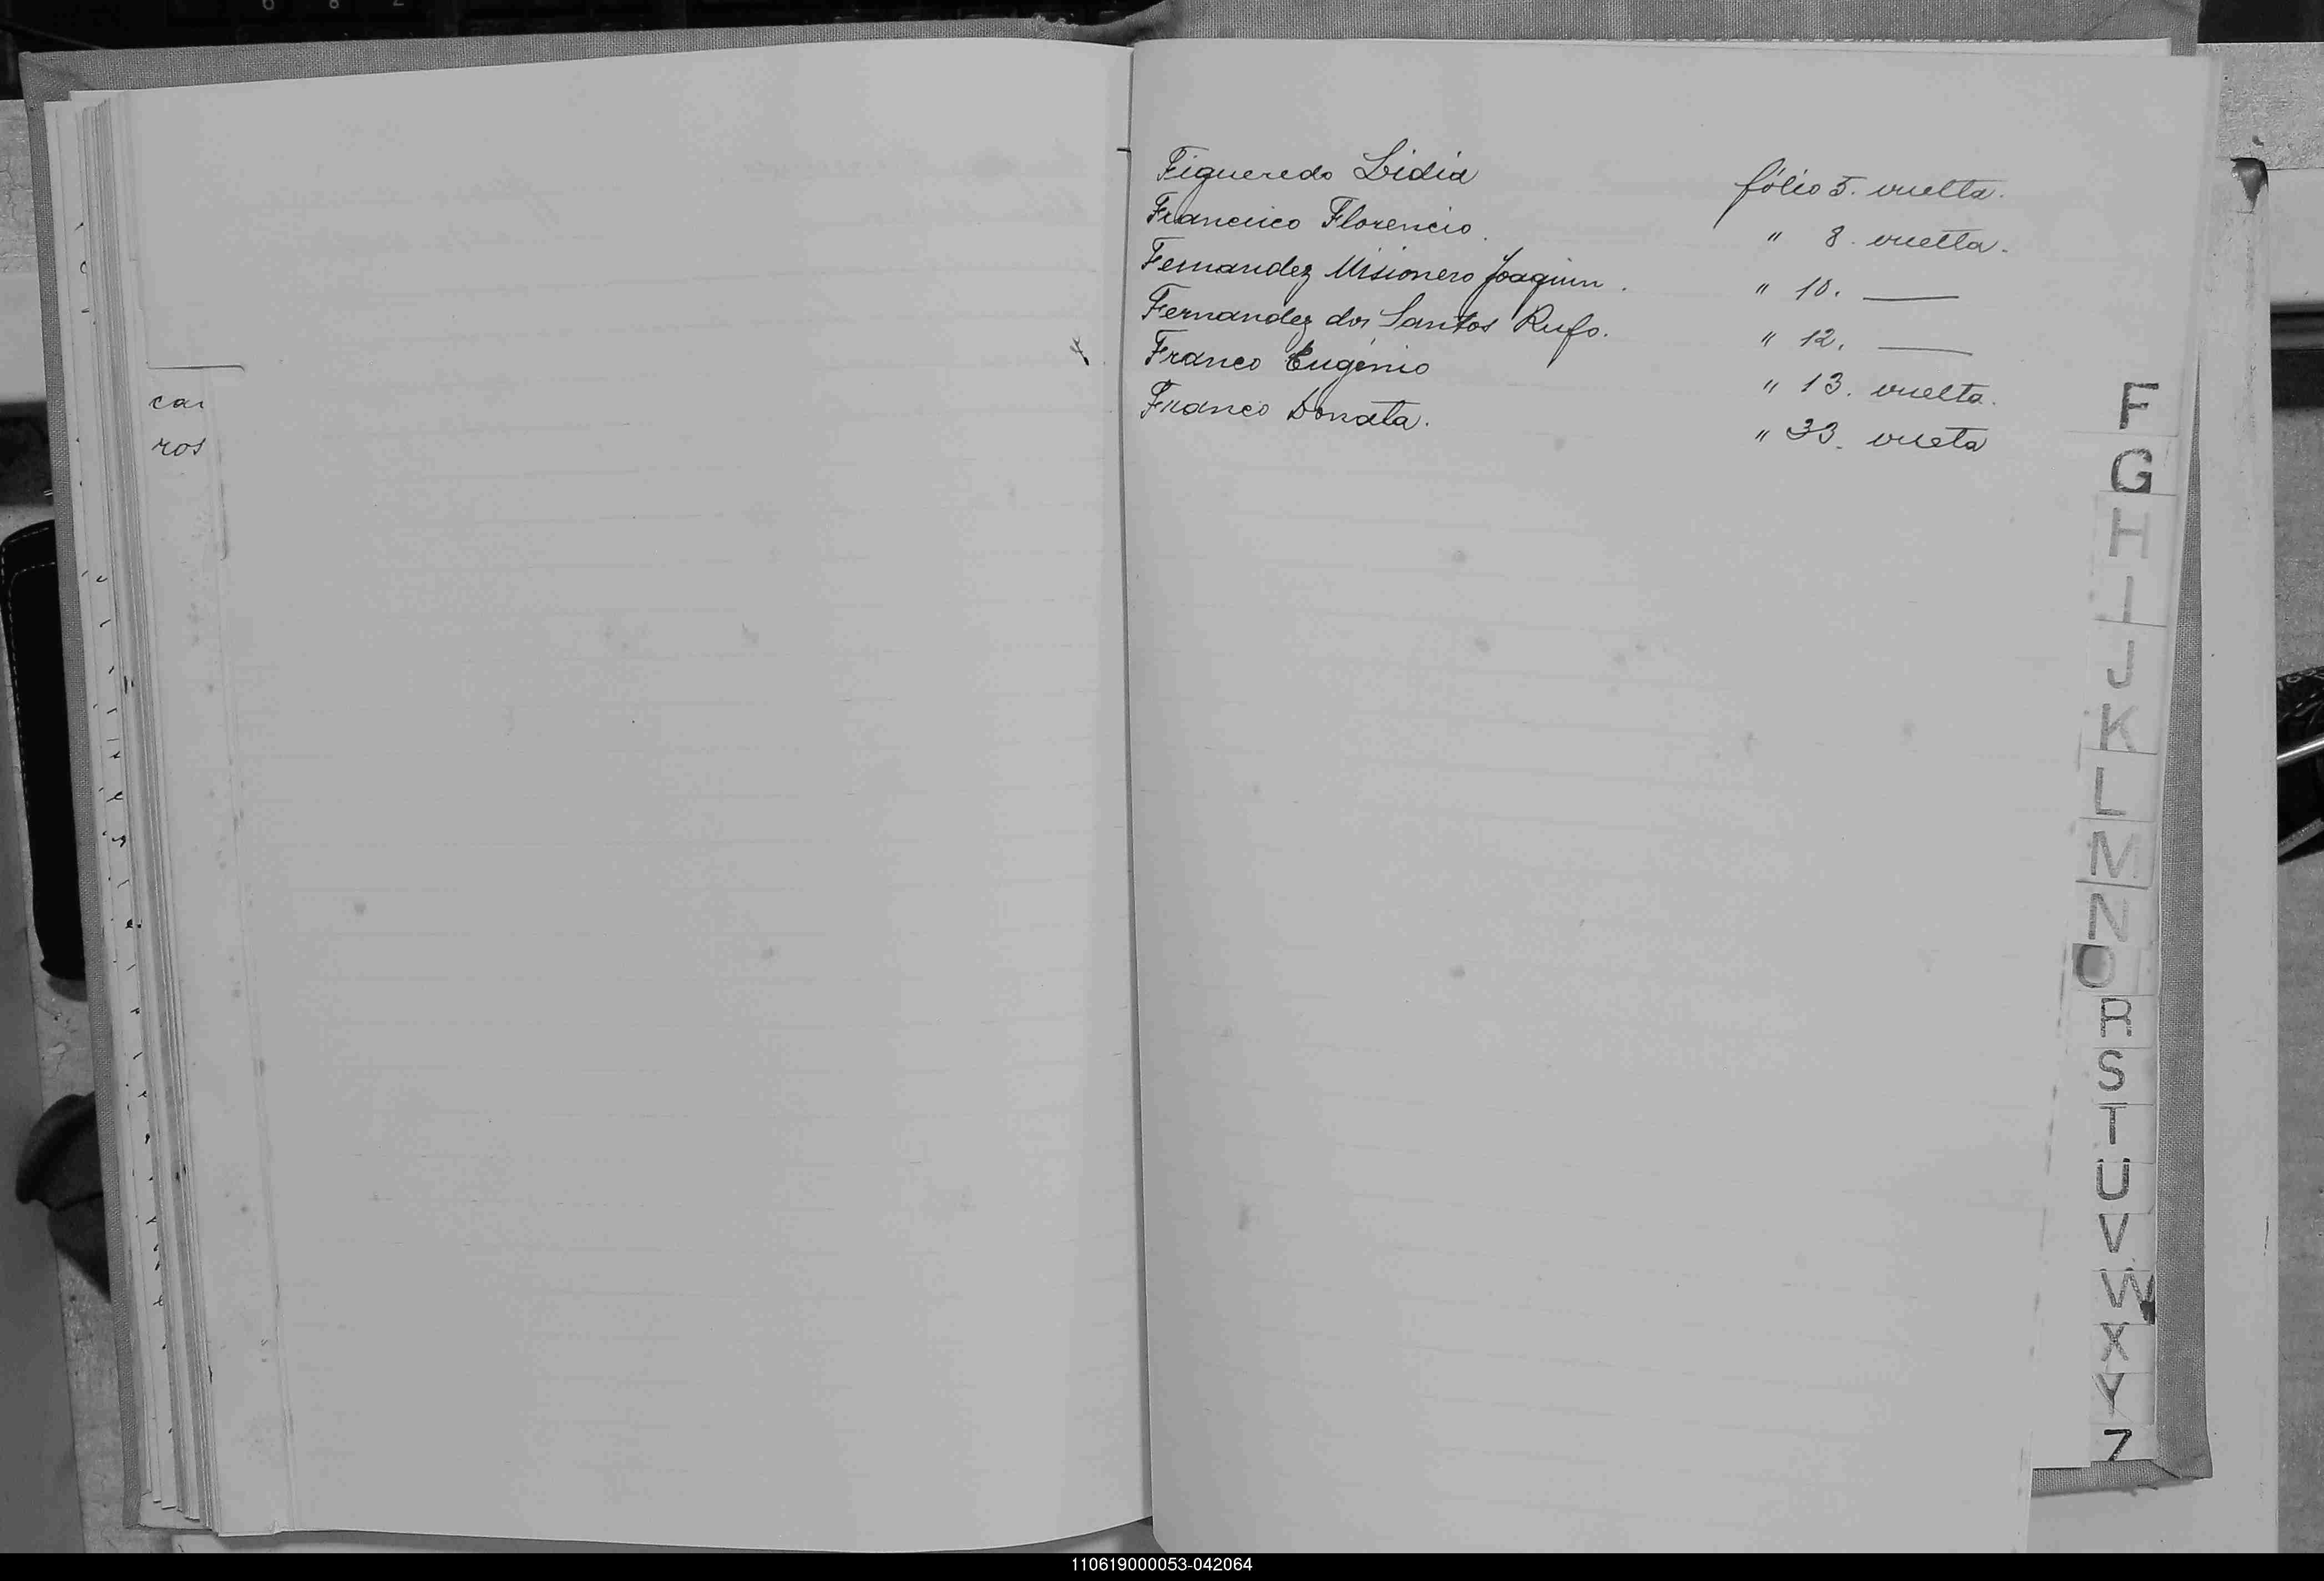 Figueredo Lidia fólio 5. vuelta.
Francisco Florencio. " 8. vuelta.
Fernandez Misionero Joaquin. " 10. ——
Fernandez dos Santos Rufo. " 12. ——
Franco Eugenio " 13. vuelta.
Franco Donata. " 33. vueta
ros
F
G
H
I
J
K
L
M
N
O
R
S
T
U
V
W
X
Y
Z
110619000053-042064